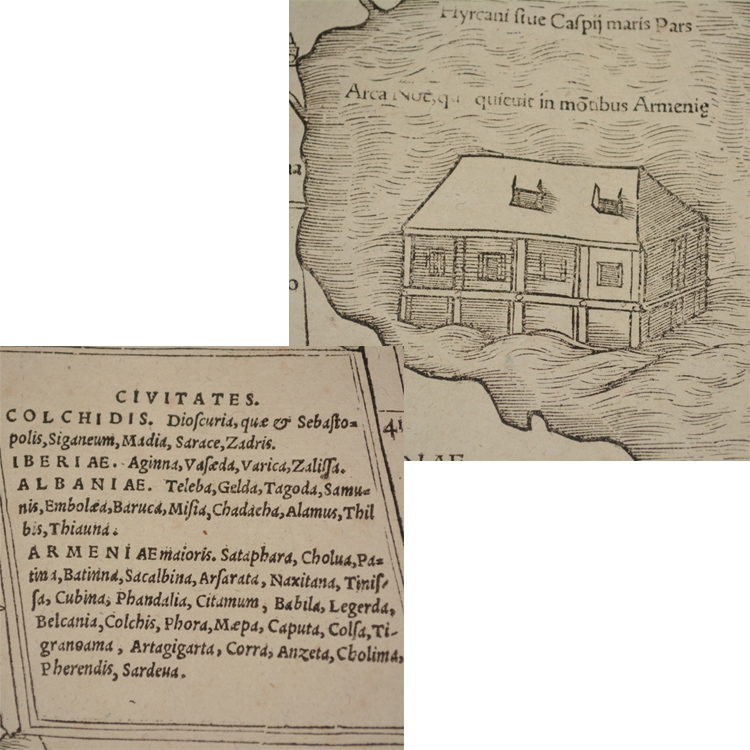 Hyrcani ſiue Caſpij maris Pars
Arca Noe, quieuit in mōtibus Armenię
41
CIVITATES.
COLCHIDIS. Dioſcuria, quæ & Sebaſto=
polis, Siganeum, Madia, Sarace, Zadris.
IBERIAE. Aginna, Vaſæda, Varica, Zaliſſa.
ALBANIAE. Teleba, Gelda, Tagoda, Samu=
nis, Embolæa, Baruca, Miſia, Chadacha, Alamus, Thil
bis, Thiauna.
ARMENIAE maioris. Sataphara, Cholua, Pa=
tina, Batinna, Sacalbina, Arſarata, Naxitana, Tiniſ=
ſa, Cubina, Phandalia, Citamum, Babila, Legerda,
Belcania, Colchis, Phora, Mæpa, Caputa, Colſa, Ti-
granoama, Artagigarta, Corra, Anzeta, Cholima,
Pherendis, Sardeua.